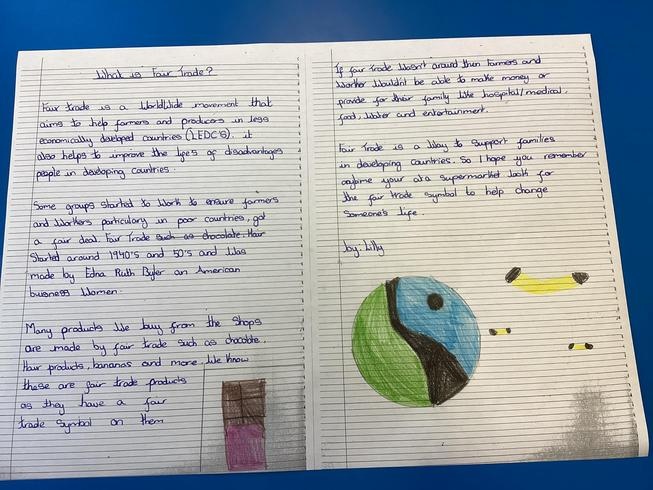 What is Fair Trade?
Fair trade is a Worldwide movement that
aims to help farmers and producers in less
economically developed countries (LEDC'S). it
also helps to improve the lifes of disadvantages
people in developing countries.
Some groups started to work to ensure farmers
and Workers particulary in poor countries, got
a fair deal. Fair Trade such as chocolate. Hair
Started around 1940's and 50's and Was
made by Edna Ruth Byler an American
buisness Women.
Many products We buy from the Shops
are made by fair trade such as chocolate,
Hair products, bananas and more. We Know
these are fair trade products
as they have a fair
trade Symbol on them
If fair trade Wasn't around then farmers and
Worker Wouldn't be able to make money or
provide for their family like hospital/medical,
food, Water and entertainment.
Fair Trade is a Way to Support families
in developing countries. So I hope you remember
anytime your at a supermarket look for
the fair trade symbol to help change
Someone's life.
by: Lilly